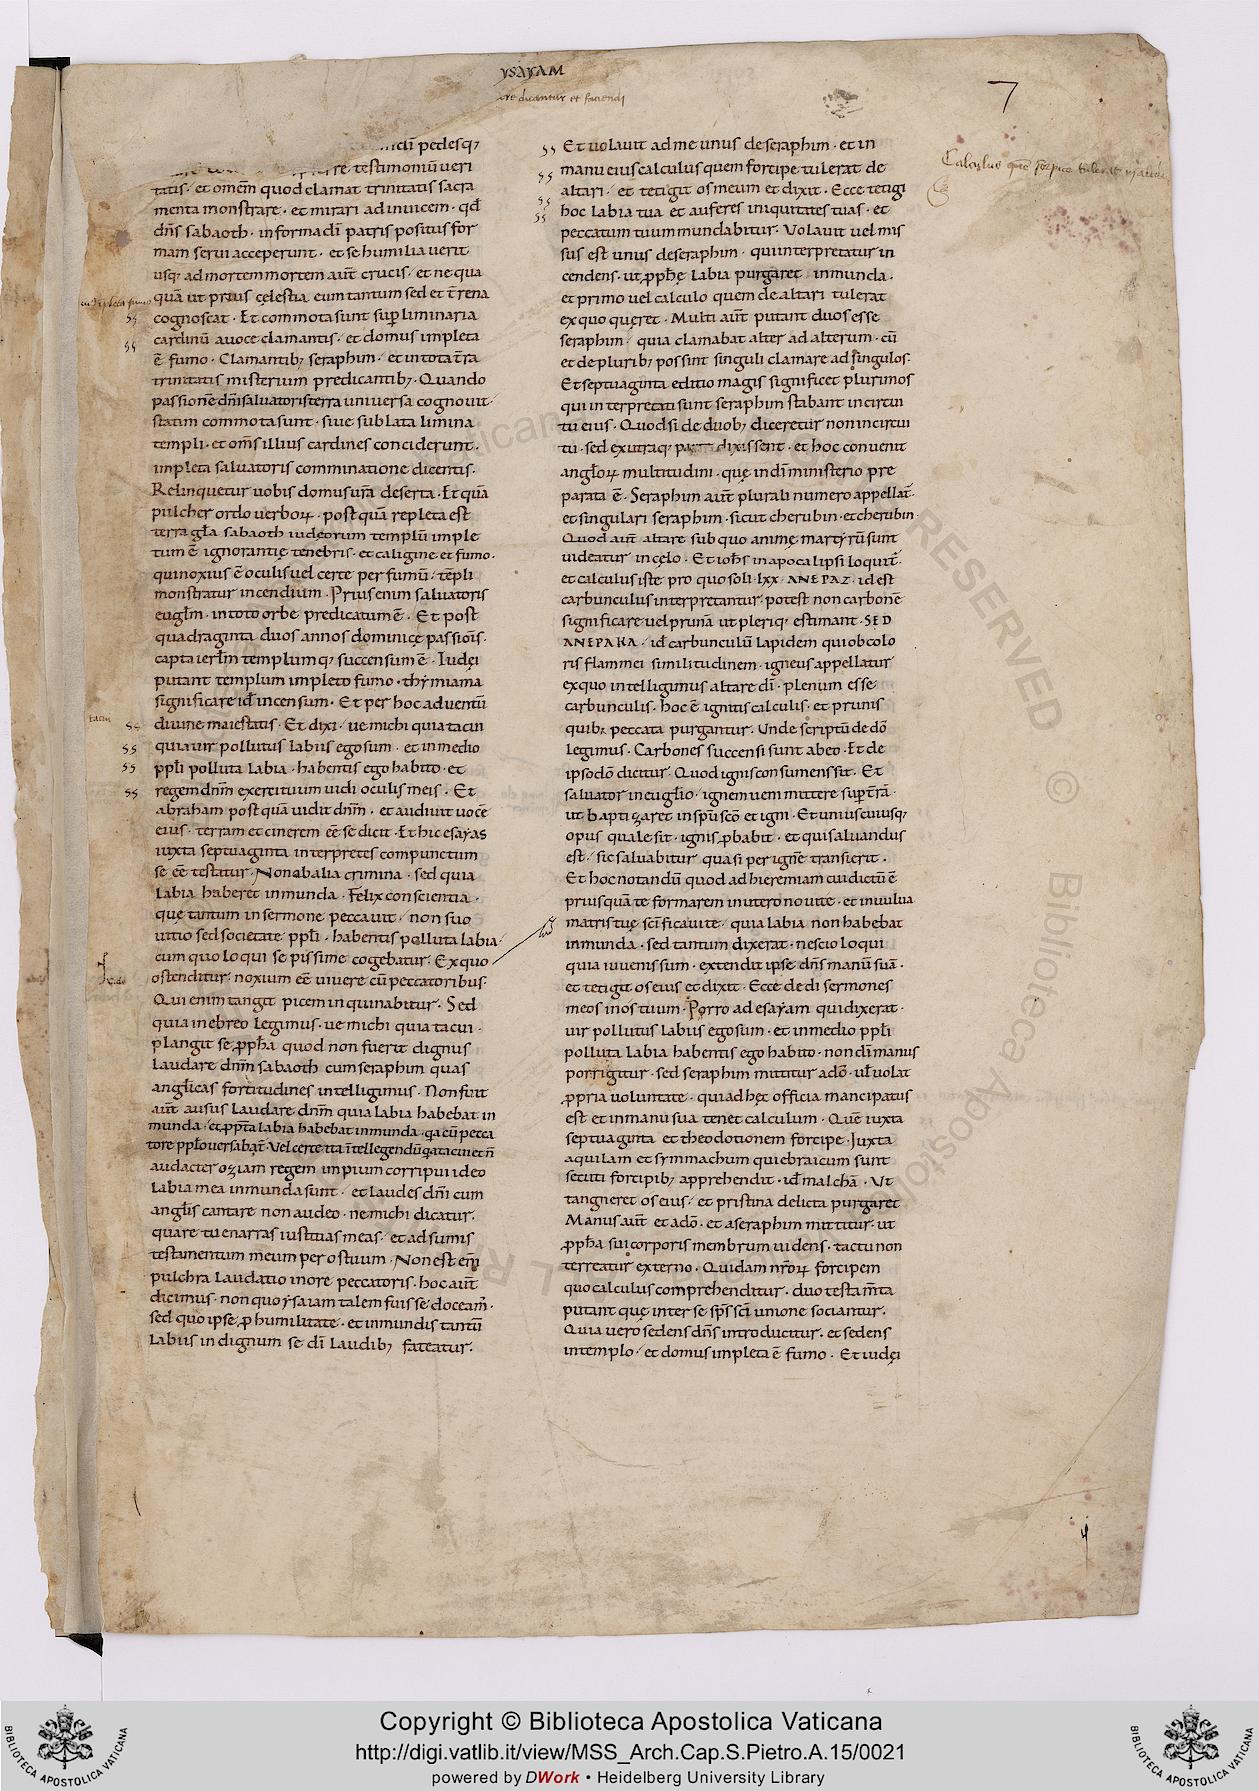 YSAYAM
dicantur et faciendi
7
pedesq;
re testimoniũ veri
tatis · et omẽm quod clamat trinitatis sacra
menta monstrare · et mirari ad invicem · qd̃
dñs sabaoth · in forma dĩ patris positus for
mam servi acceperunt · et se humiliaverit
usq; ad mortem mortem aut̃ crucis · et ne qua
quã ut prius cęlestia eum tantum sed et t̃rena
cognoscat · Et commota sunt sup̱liminaria
cardinũ avoce clamantis · et domus impleta
ẽ fumo · Clamantib; seraphim · et in tota t̃ra
trinitatis misterium predicantib; · Quando
passionẽ dñi salvatoris terra universa cognovit ·
statim commota sunt · sive sublata limina
templi · et om̃s illius cardines conciderunt ·
impleta salvatoris comminatione dicentis ·
Relinquetur vobis domus ur̃a deserta · Et quã
pulcher ordo verboꝝ · post quã repleta est
terra gl̃a sabaoth iudeorum templũ imple
tum ẽ ignorantię tenebris · et caligine et fumo ·
qui noxius ẽ oculis vel certe per fumũ · tẽpli
monstratur incendium · Prius enim salvatoris
eugl̃m · in toto orbe predicatum ẽ · Et post
quadraginta duos annos dominicę passioĩs ·
capta ierl̃m templumq; succensum ẽ · Iudęi
putant templum impleto fumo · thymiama
significare id̃ incensum · Et per hoc adventũ
divine maiestatis · Et dixi · ve michi quia tacui
quia vir pollutus labiis ego sum · et in medio
ppl̃i polluta labia · habentis ego habito · et
regem dñm exercituum vidi oculis meis · Et
abraham post quã vidit dñm · et audivit vocẽ
eius · terram et cinerem eẽ se dicit · Et hic esayas
iuxta septuaginta interpretes compunctum
se eẽ testatur · Non ob alia crimina · sed quia
labia haberet inmunda · Felix conscientia ·
quę tantum in sermone peccavit · non suo
vitio sed societate ppl̃i · habentis polluta labia ·
cum quo loqui sepissime cogebatur · Ex quo
ostenditur · noxium eẽ vivere cũ peccatoribus ·
Qui enim tangit picem inquinabitur · Sed
quia in ebreo legimus · ve michi quia tacui ·
plangit se ꝓph̃a quod non fuerit dignus
laudare dñm sabaoth cum seraphim quas
anglicas fortitudines intelligimus · Non fuit
aut̃ ausus laudare dñm quia labia habebat in
munda · et ꝓpt̃a labia habebat inmunda · qa cũ pecca
tore ppl̃o versabat̃ · Vel certe ita ĩtellegendũ
audacter oziam regem impium corripui ideo
labia mea inmunda sunt · et laudes dñi cum
angl̃is cantare non audeo · ne michi dicatur ·
quare tu enarras iustitias meas · et adsumis
testamentum meum per os tuum · Non est em̃
pulchra laudatio in ore peccatoris · hoc aut̃
dicimus · non quo ysaiam talem fuisse doceam̃ ·
sed quo ipse ꝓ humilitate · et inmundis tantũ
labiis indignum se dĩ laudib; fateatur ·
tacui
Et volavit ad me unus de seraphim · et in
manu eius calculus quem forcipe tulerat de
altari · et tetigit os meum et dixit · Ecce tetigi
hoc labia tua et auferes iniquitates tuas · et
peccatum tuum mundabitur · Volavit vel mis
sus est unus de seraphim · qui interpretatur in
cendens · ut ꝓph̃ę labia purgaret inmunda ·
et primo vel calculo quem de altari tulerat
ex quo quęret · Multi aut̃ putant duos esse
seraphim · quia clamabat alter ad alterum · cũ
et de plurib; possint singuli clamare ad singulos ·
Et septuaginta editio magis significet plurimos
qui interpretati sunt seraphim stabant in circui
tu eius · Quod si de duob; diceretur non in circui
tu · sed ex utraq; parte dixissent · et hoc convenit
angl̃oꝝ multitudini · quę in dĩ ministerio pre
parata ẽ · Seraphim aut̃ plurali numero appellat̃ ·
et singulari seraphim · sicut cherubin · et cherubin ·
Quod aut̃ altare sub quo animę martyrũ sunt
videatur in cęlo · Et ioh̃s in apocalipsi loquit̃ ·
et calculus iste pro quo soli lxx · ANEPAZ · id est
carbunculus interpretantur · potest non carbonẽ
significare vel prunã ut pleriq; estimant · SED
ANEPAKA · id̃ carbunculũ lapidem qui ob colo
ris flammei similitudinem · igneus appellatur
ex quo intelligimus altare dĩ · plenum esse
carbunculis · hoc ẽ ignitis calculis · et prunis
quib; peccata purgantur · Unde scriptũ de dõ
legimus · Carbones succensi sunt ab eo · Et de
ipso dõ dicitur · Quod ignis consumens sit · Et
salvator in euglio · ignem veni mittere sup̱ t̃rã ·
ut baptizaret in sp̃u scõ et igni · Et unius cuiusq;
opus quale sit · ignis ꝓbabit · et qui salvandus
est · sic salvabitur quasi per ignẽ transierit ·
Et hoc notandũ quod ad hieremiam cui dictũ ẽ
priusquã te formarem in utero novi te · et in vulva
matris tuę scĩficavi te · quia labia non habebat
inmunda · sed tantum dixerat · nescio loqui
quia iuvenis sum · extendit ipse dñs manũ suã ·
et tetigit os eius et dixit · Ecce dedi sermones
meos in os tuum · Porro ad esayam qui dixerat ·
vir pollutus labiis ego sum · et in medio ppl̃i
polluta labia habentis ego habito · non dĩ manus
porrigitur · sed seraphim mittitur a dõ · ul̃ volat
ꝓpria voluntate · quia ad hęc officia mancipatus
est et in manu sua tenet calculum · Quẽ iuxta
septuaginta et theodotionem forcipe · Iuxta
aquilam et symmachum qui ebraicum sunt
secuti forcipib; apprehendit · id̃ malchã · Ut
tangneret os eius · et pristina delicta purgaret
Manus aut̃ et a dõ · et a seraphim mittitur · ut
ꝓph̃a sui corporis membrum videns · tactu non
terreatur externo · Quidam nr̃oꝝ forcipem
quo calculus comprehenditur · duo testam̃ta
putant quę inter se sp̃s scĩ unione sociantur ·
Quia vero sedens dñs introducitur · et sedens
in templo · et domus impleta ẽ fumo · Et iudęi
Copyright © Biblioteca Apostolica Vaticana
http://digi.vatlib.it/view/MSS_Arch.Cap.S.Pietro.A.15/0021
powered by DWork • Heidelberg University Library
BIBLIOTECA APOSTOLICA VATICANA
BIBLIOTECA APOSTOLICA VATICANA